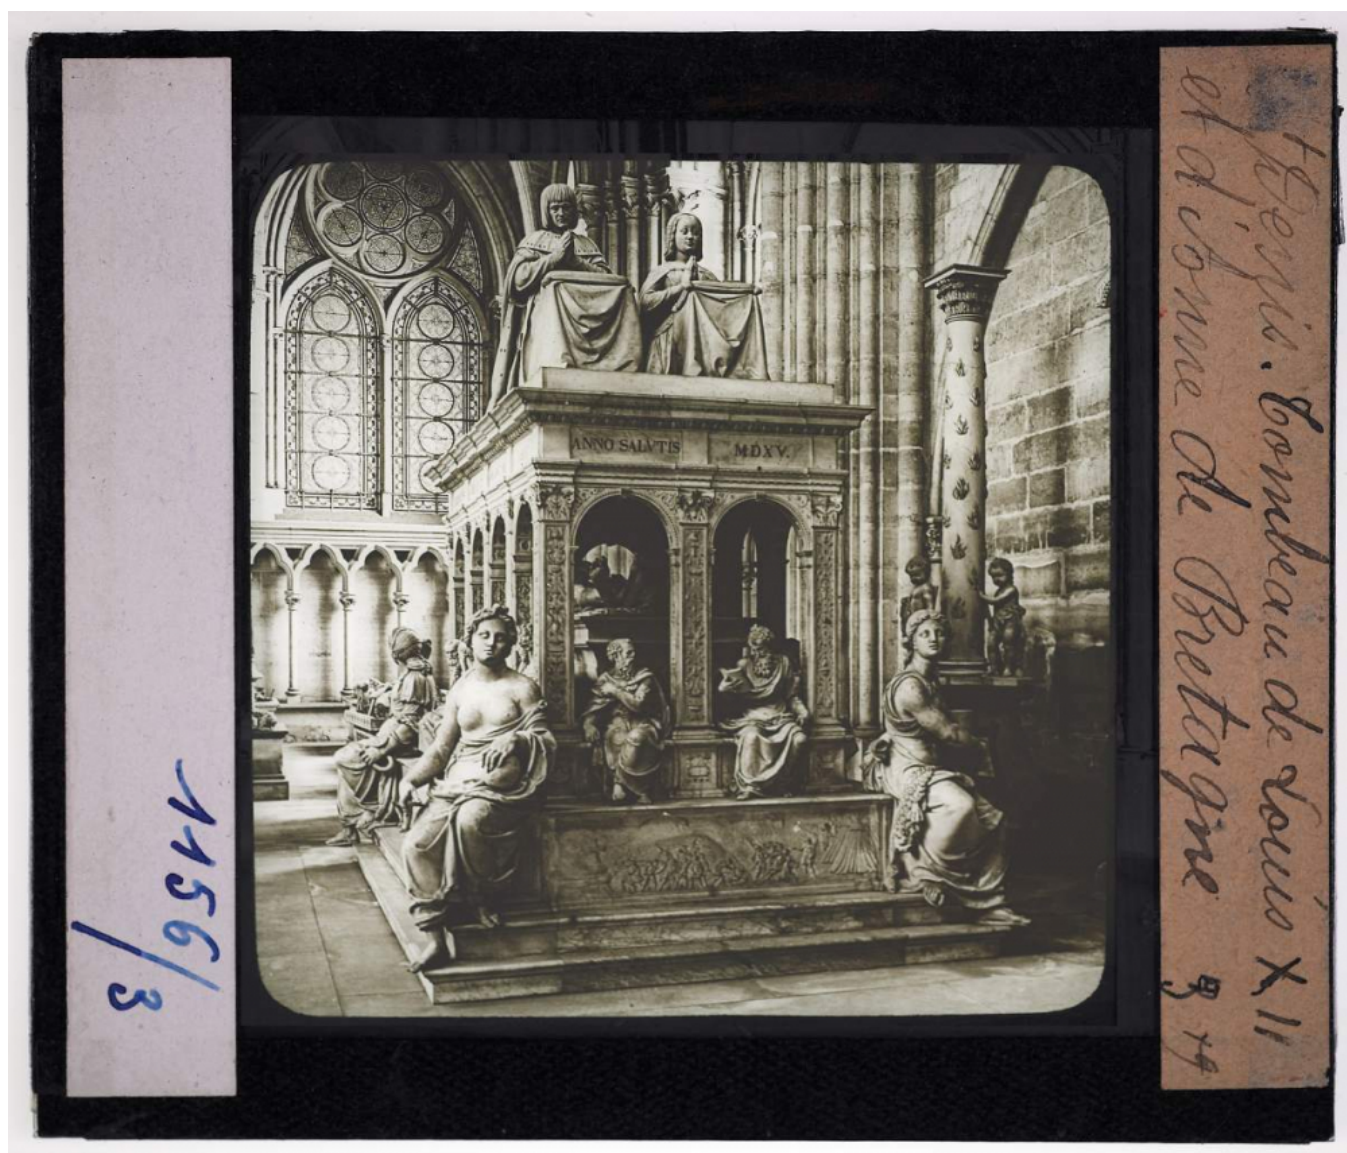 1156/3
ANNO SALVTIS MDXV.
Tombeau de Louis XII
et d'Anne de Bretagne